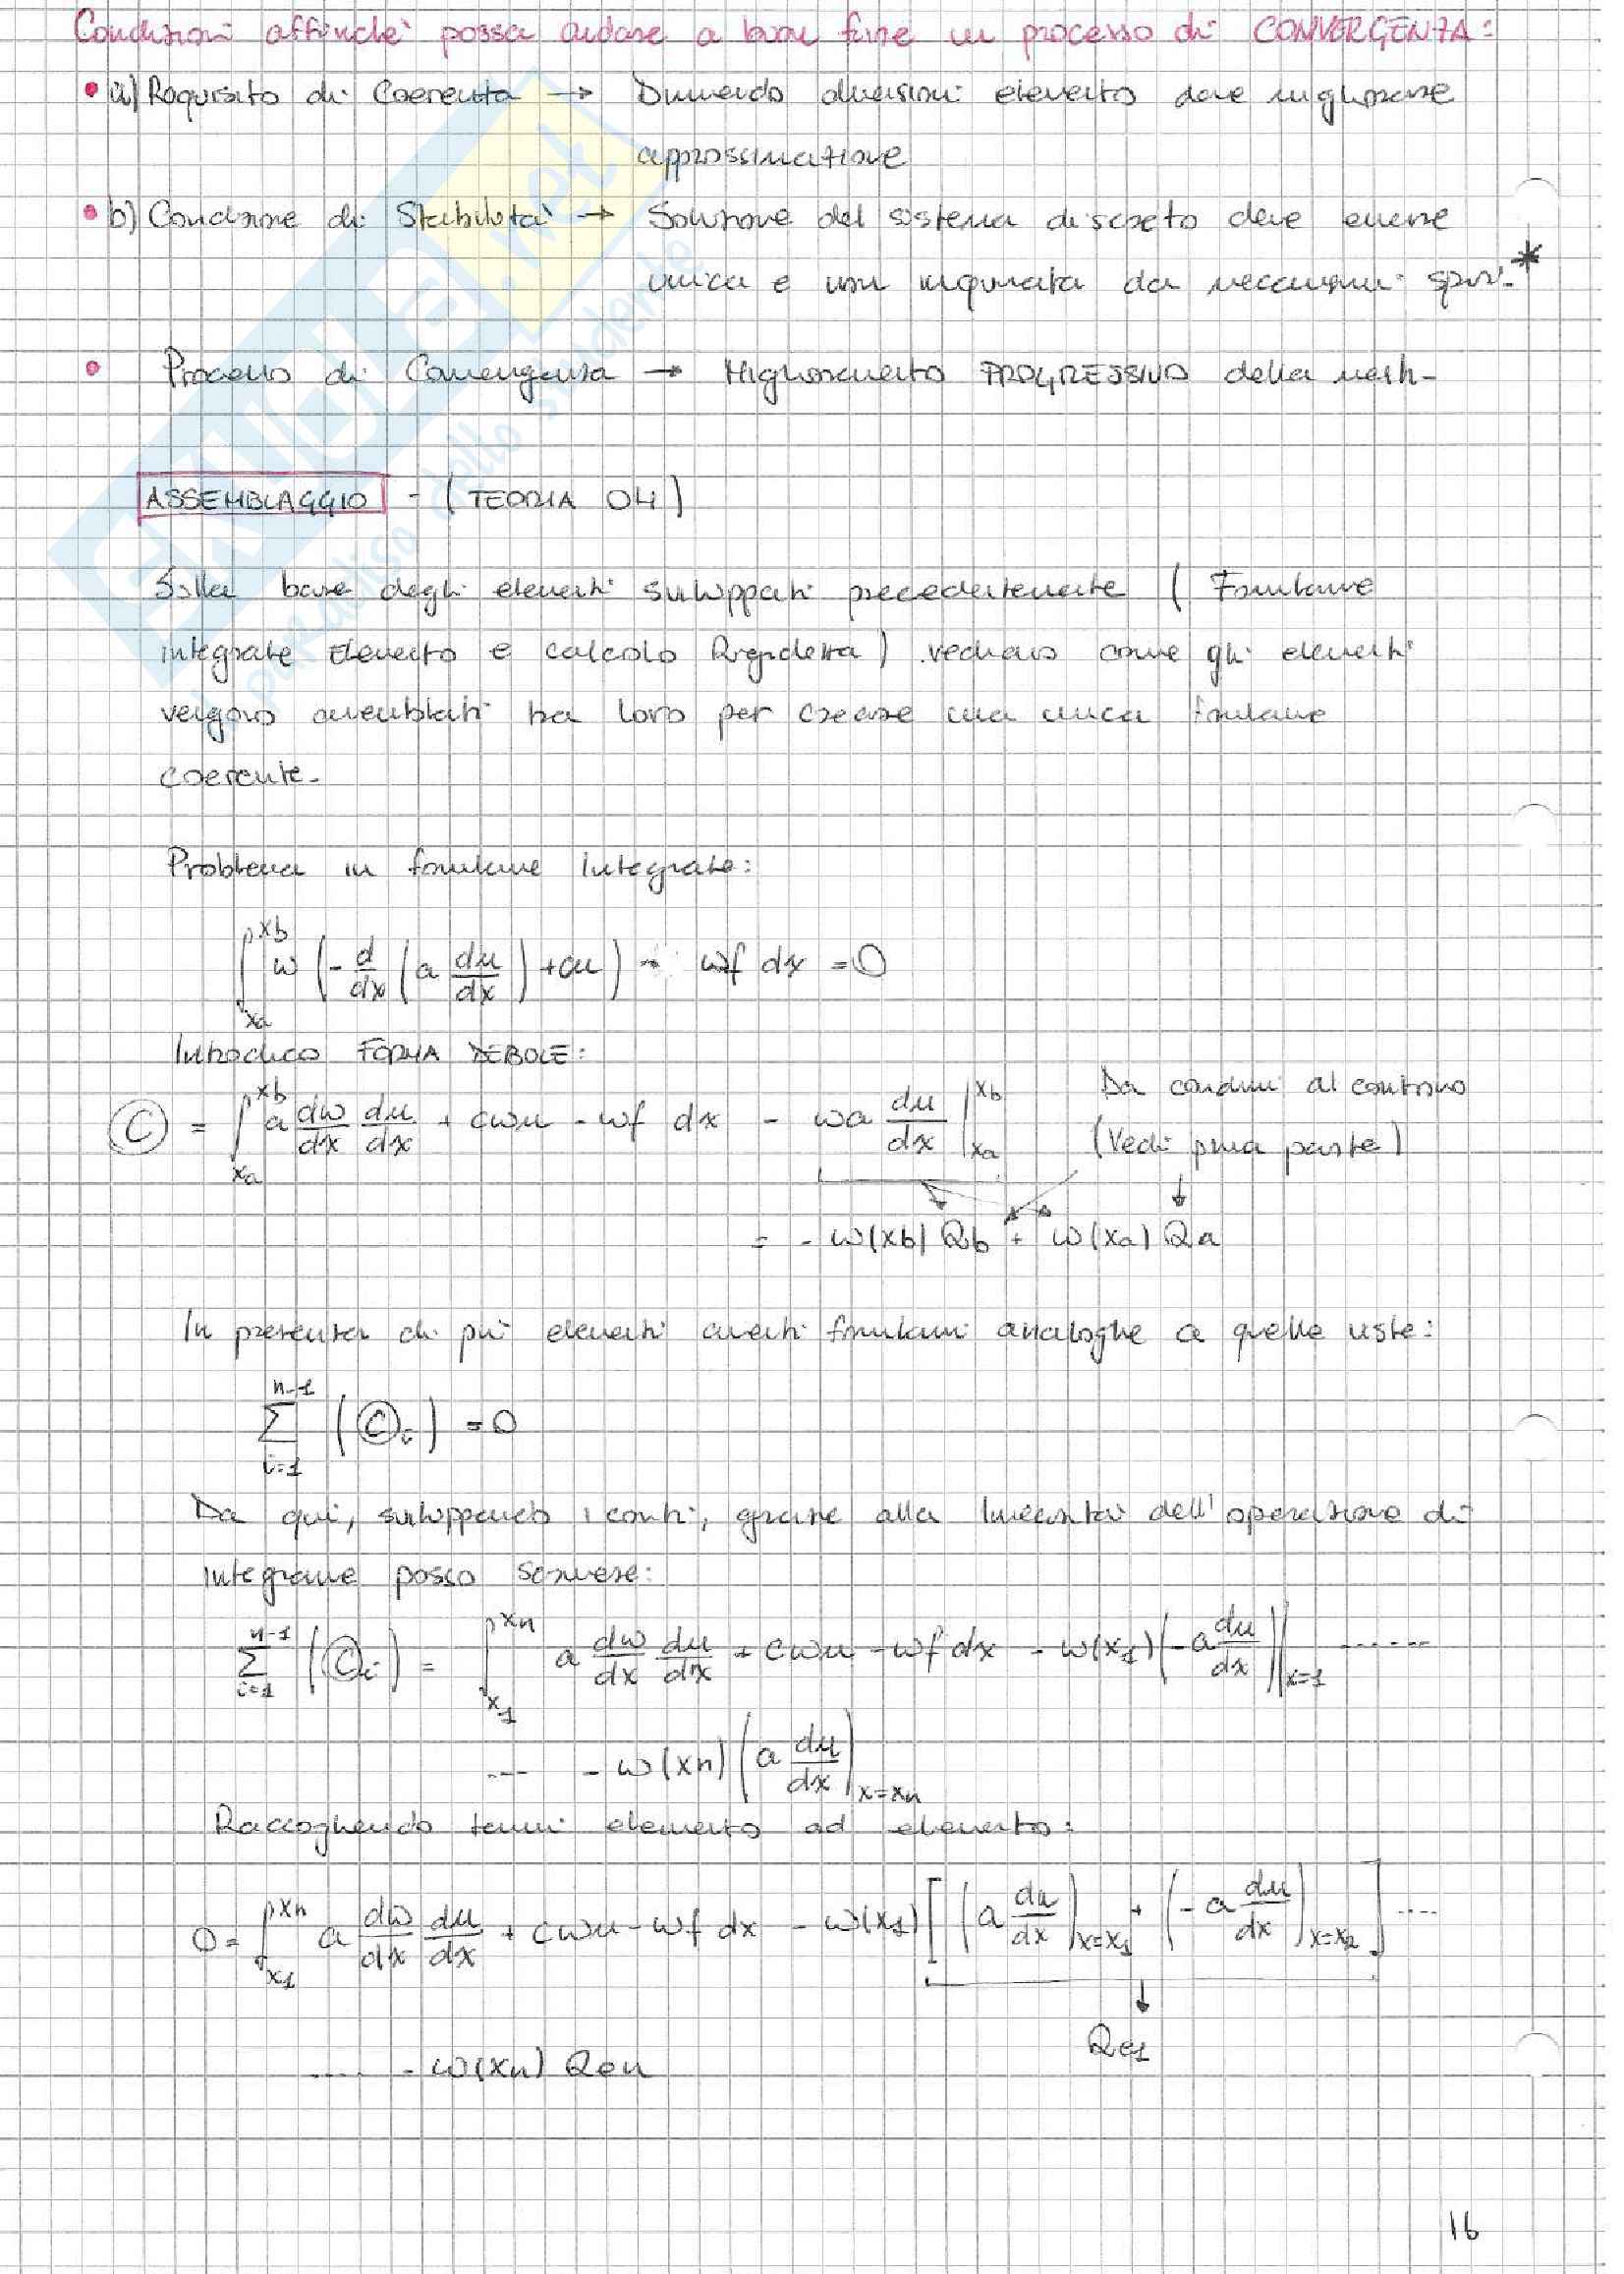 Condizioni affinchè possa andare a buon fine un processo di CONVERGENZA:
• a) Requisito di Coerenza → Diminuendo dimensioni elemento deve migliorare
approssimazione
• b) Condizione di Stabilità → Soluzione del sistema discreto deve essere
unica e non inquinata da meccanismi spuri. *
• Processo di Convergenza → Miglioramento PROGRESSIVO della mesh-
ASSEMBLAGGIO - (TEORIA 04)
Sulla base degli elementi sviluppati precedentemente (Formulazione
integrale Elemento e calcolo Rigidezza) vediamo come gli elementi
vengono assemblati tra loro per creare una unica formulazione
coerente.
Problema in formulazione Integrale:
∫_{xa}^{xb} w (-d/dx (a du/dx) + cu) - wf dx = 0
Introduco FORMA DEBOLE:
Ⓒ = ∫_{xa}^{xb} a dw/dx du/dx + cwu - wf dx - wa du/dx |_{xa}^{xb} Da condizioni al contorno
(Vedi prima parte)
↓
= - w(xb) Qb + w(xa) Qa
In presenza di più elementi aventi formulazioni analoghe a quelle viste:
∑_{i=1}^{n-1} (Ⓒ_i) = 0
Da qui, sviluppando i conti, grazie alla linearità dell'operazione di
integrazione posso scrivere:
∑_{i=1}^{n-1} (Ⓒ_i) = ∫_{x1}^{xn} a dw/dx du/dx + cwu - wf dx - w(x1) (-a du/dx)|_{x=1} .......
.... - w(xn) (a du/dx)_{x=xn}
Raccogliendo termini elemento ad elemento:
0 = ∫_{x1}^{xn} a dw/dx du/dx + cwu - wf dx - w(x1) [(a du/dx)_{x=x1} + (-a du/dx)_{x=x2}] ....
↓
Qe1
..... - w(xn) Qen
16
EXULA.net
il paradiso dello studente